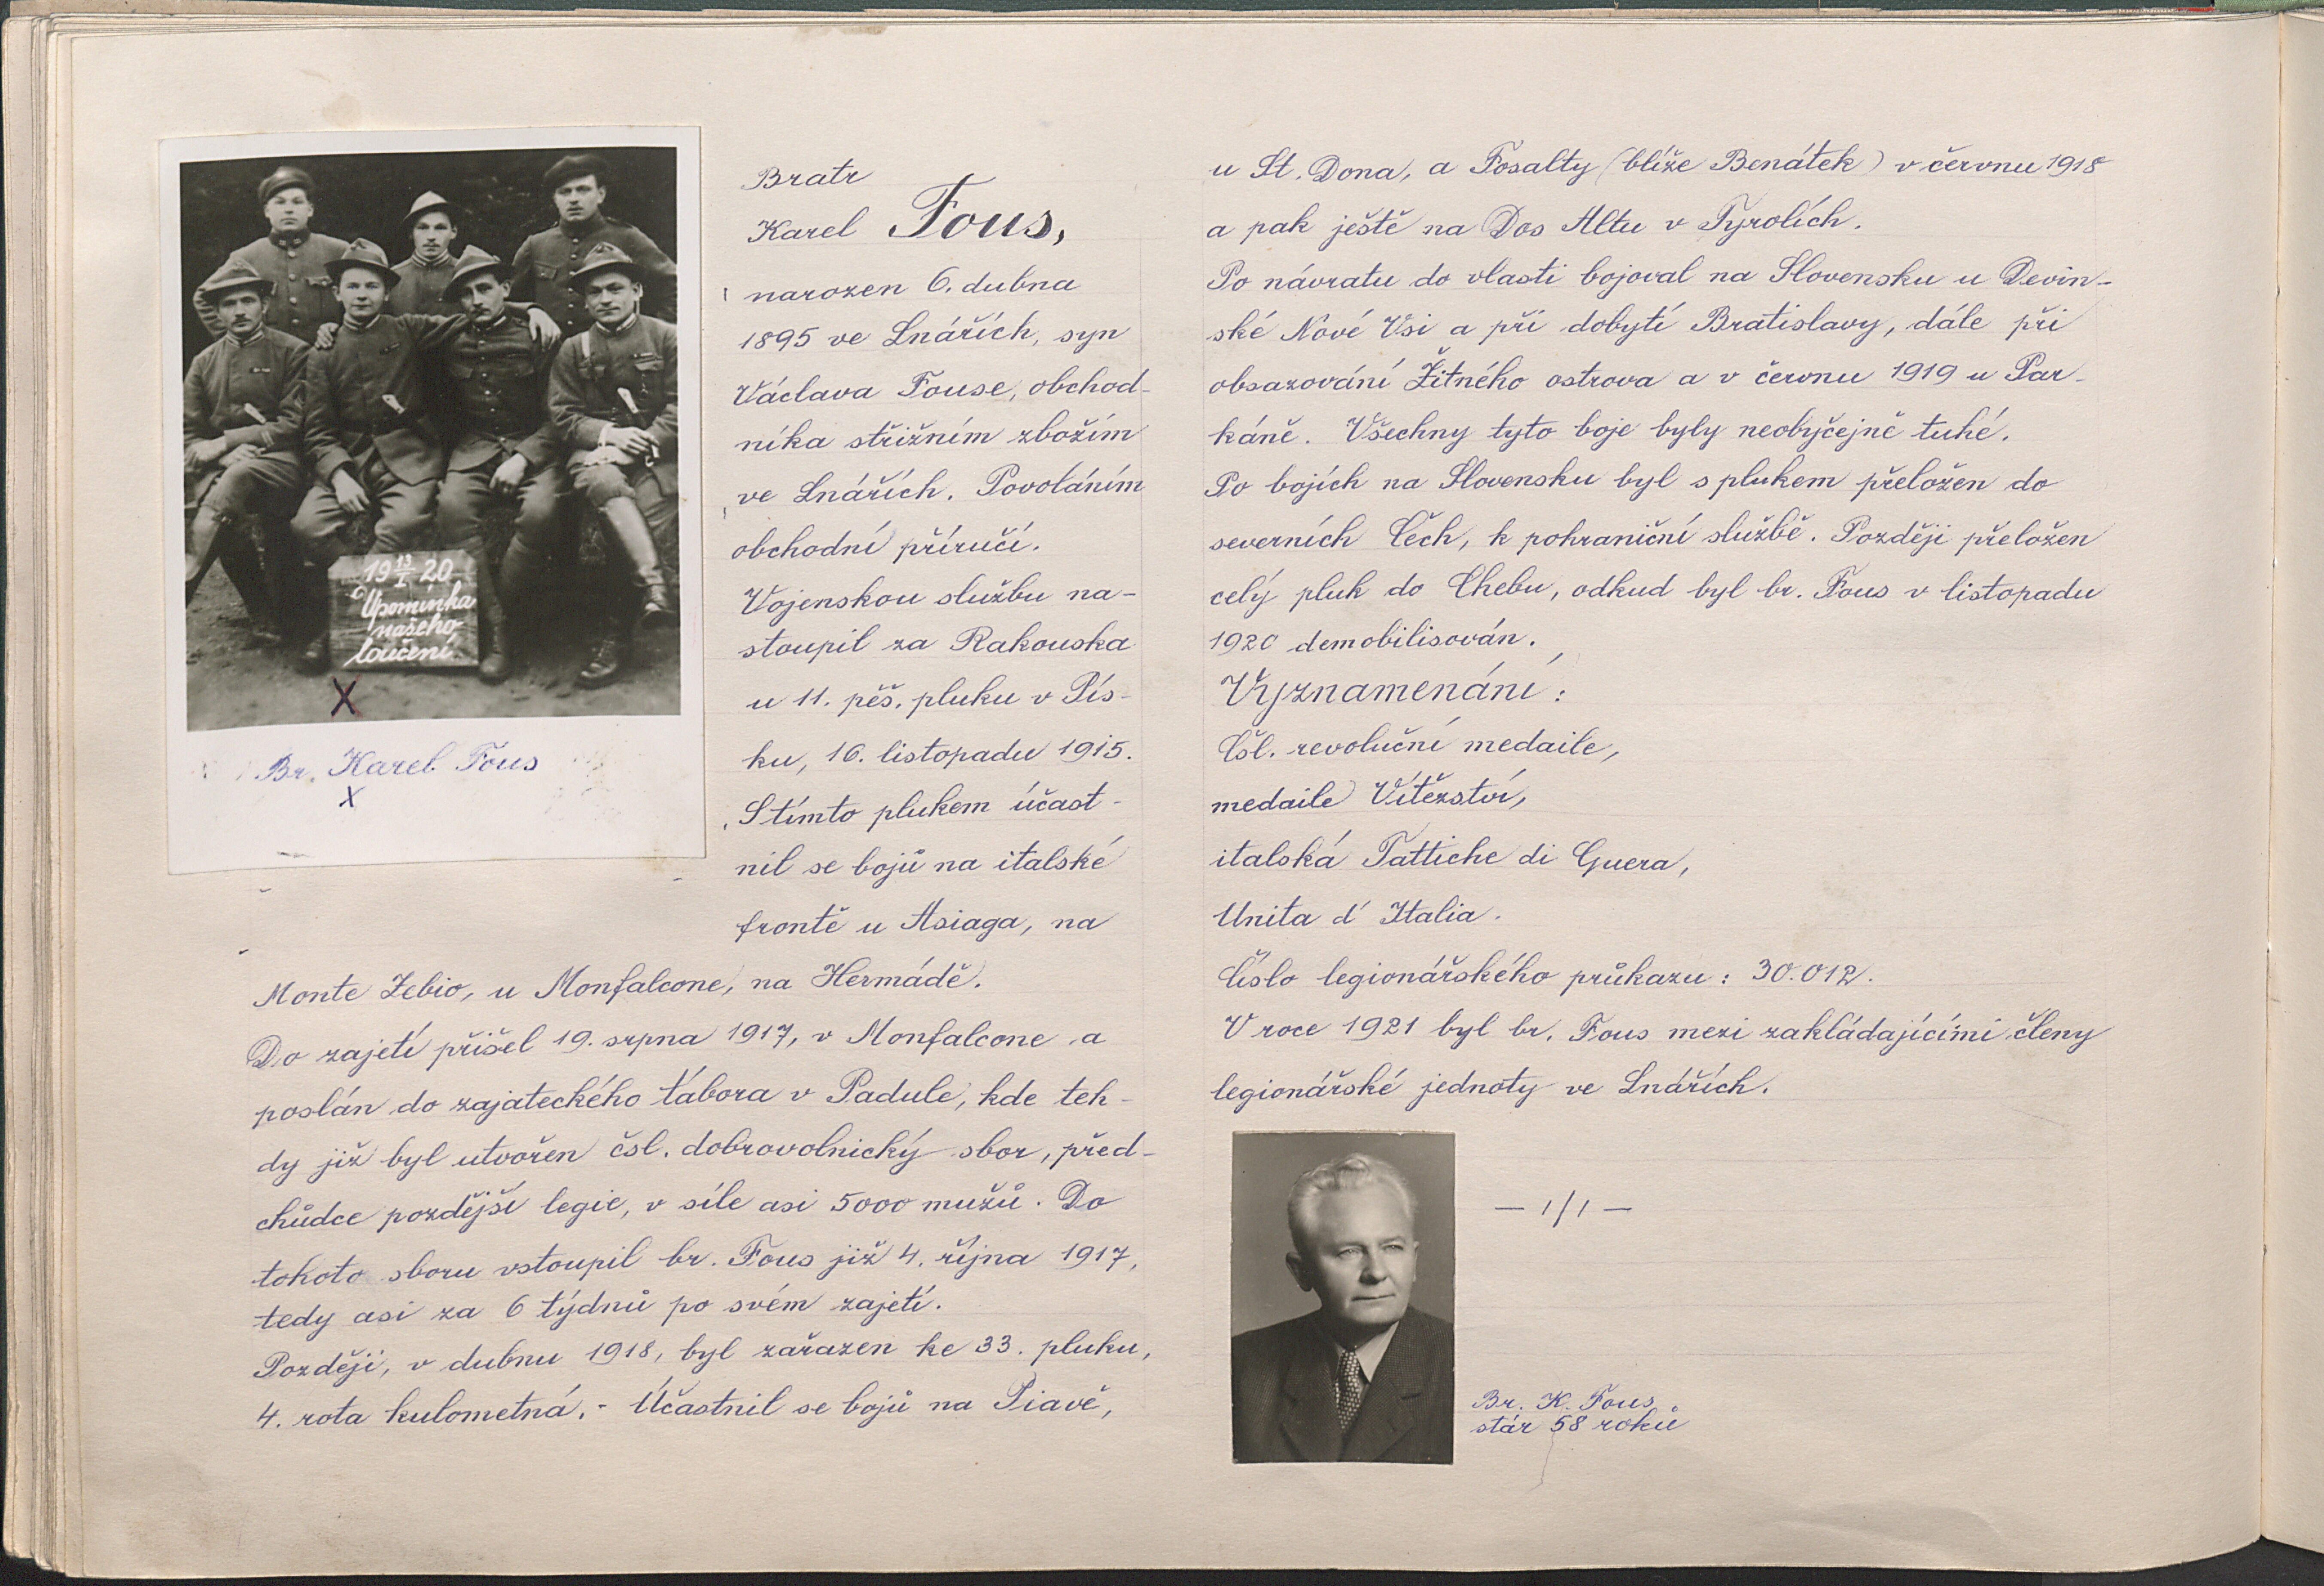 19 13/I 20
Upomínka
našeho
loučení
X
Br. Karel Fous
X
Bratr
Karel Fous,
narozen 6. dubna
1895 ve Lnářích, syn
Václava Fouse, obchod-
níka střižním zbožím
ve Lnářích. Povoláním
obchodní příručí.
Vojenskou službu na-
stoupil za Rakouska
u 11. pěš. pluku v Pís-
ku, 16. listopadu 1915.
S tímto plukem účast-
nil se bojů na italské
frontě u Asiaga, na
Monte Zebio, u Monfalcone, na Hermádě.
Do zajetí přišel 19. srpna 1917, v Monfalcone a
poslán do zajateckého tábora v Padule, kde teh-
dy již byl utvořen čsl. dobrovolnický sbor, před-
chůdce pozdější legie, v síle asi 5000 mužů. Do
tohoto sboru vstoupil br. Fous již 4. října 1917,
tedy asi za 6 týdnů po svém zajetí.
Později, v dubnu 1918, byl zařazen ke 33. pluku,
4. rota kulometná. - Účastnil se bojů na Piavě,
u St. Dona, a Fosalty (blíže Benátek) v červnu 1918
a pak ještě na Dos Altu v Tyrolích.
Po návratu do vlasti bojoval na Slovensku u Devín-
ské Nové Vsi a při dobytí Bratislavy, dále při
obsazování Žitného ostrova a v červnu 1919 u Par-
káně. Všechny tyto boje byly neobyčejně tuhé.
Po bojích na Slovensku byl s plukem přeložen do
severních Čech, k pohraniční službě. Později přeložen
celý pluk do Chebu, odkud byl br. Fous v listopadu
1920 demobilisován.
Vyznamenání:
Čsl. revoluční medaile,
medaile Vítězství,
italská Fattiche di Guera,
Unita d' Italia.
Číslo legionářského průkazu: 30.012.
V roce 1921 byl br. Fous mezi zakládajícími členy
legionářské jednoty ve Lnářích.
— 1/1 —
Br. K. Fous
stár 58 roků